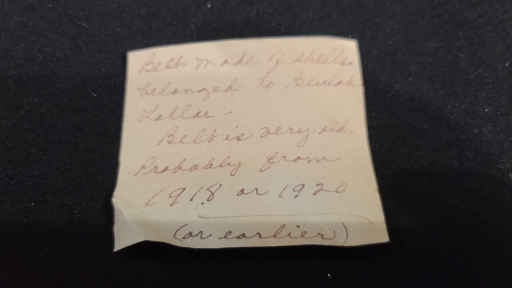 Belt made of shells
belonged to Beulah
Lollar.
Belt is very old.
Probably from
1918 or 1920
(or earlier)